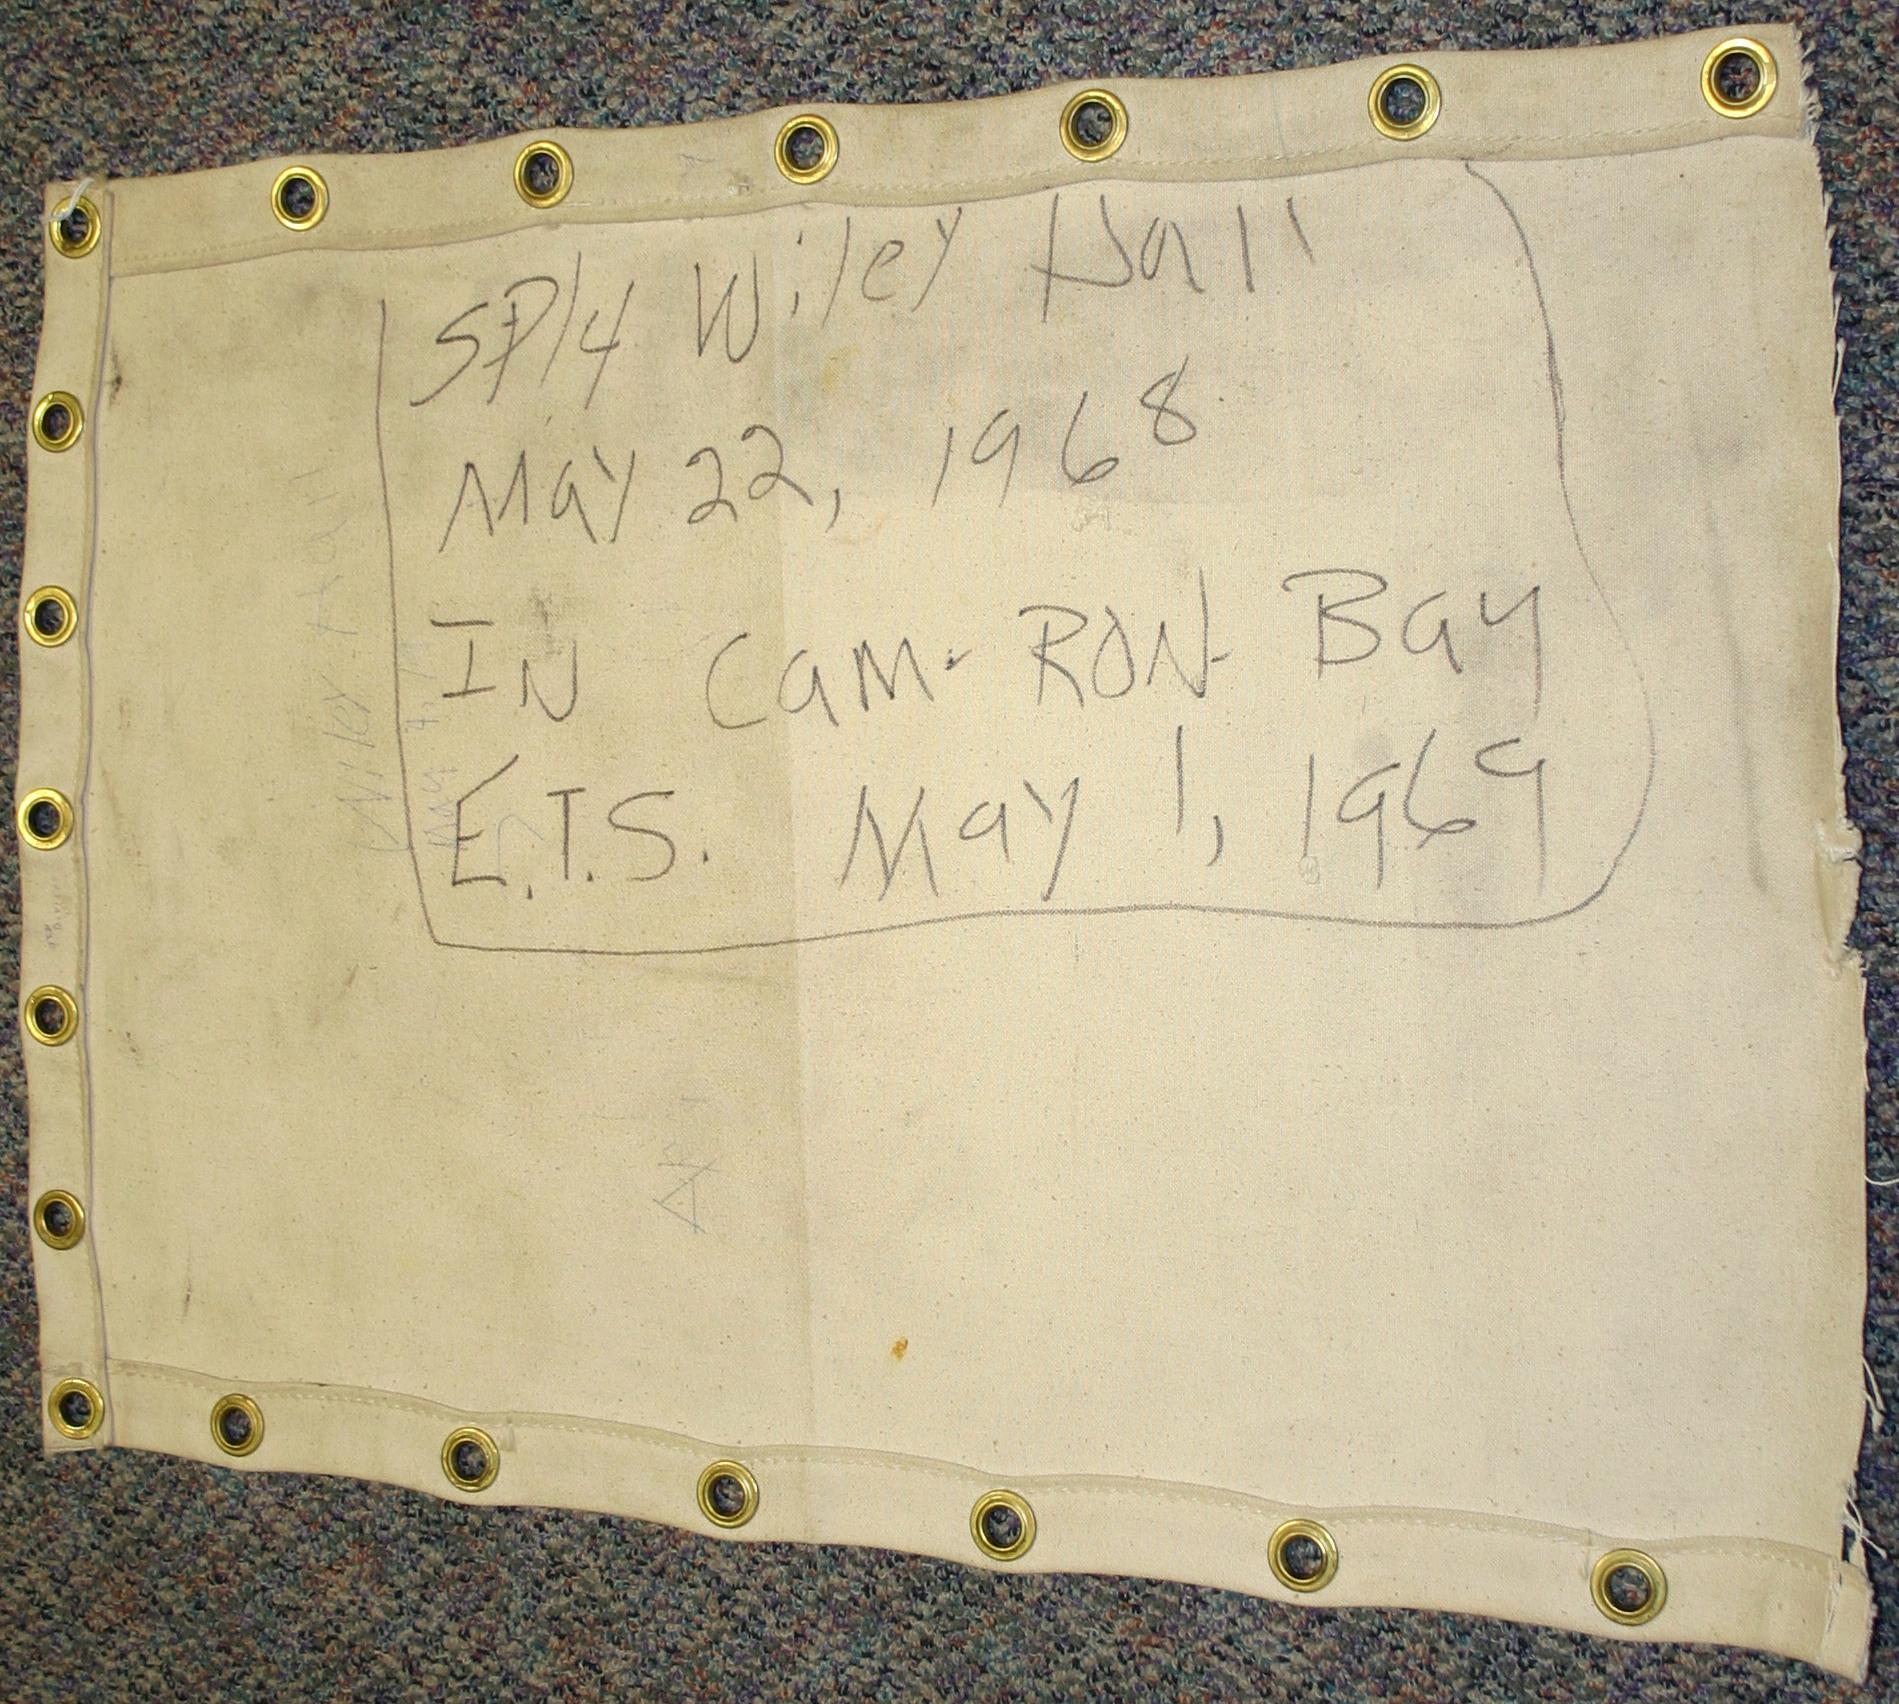 SP/4 Wiley Hall
May 22, 1968
IN CAM-RON-Bay
E.T.S. May 1, 1969
Wiley Hall